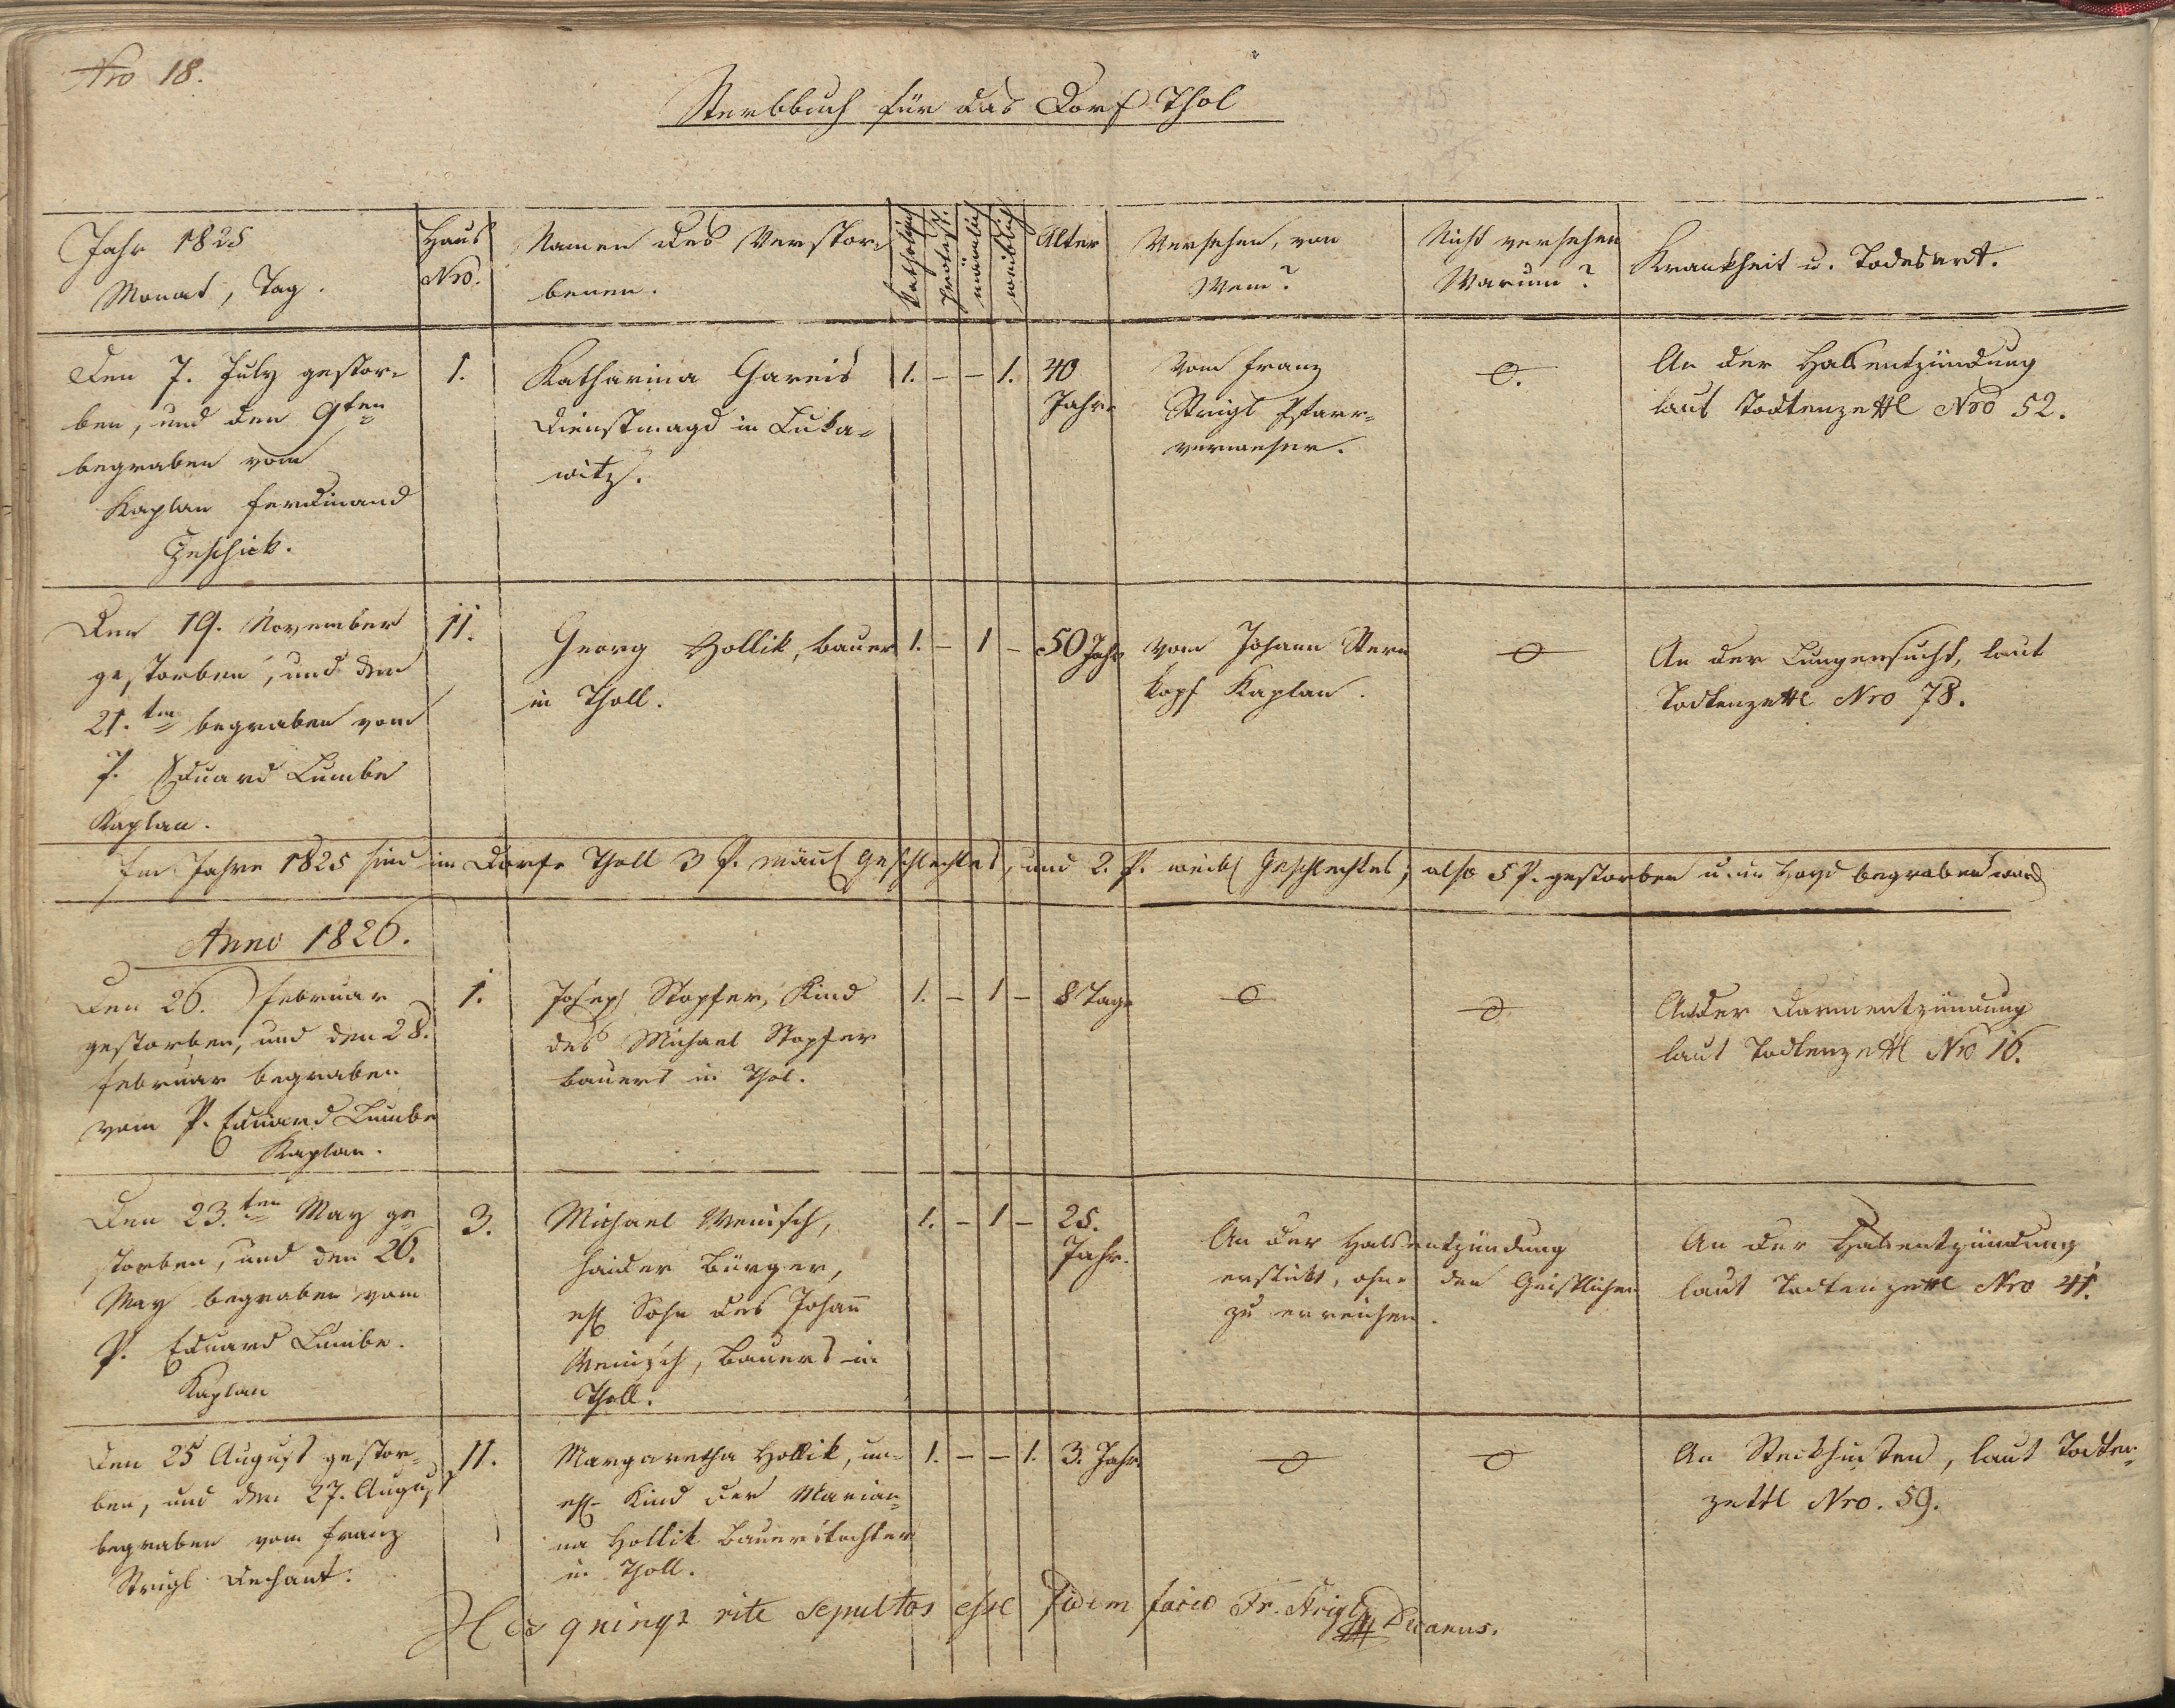 Nro 18.
Sterbbuch für das Dorf Thol
Jahr 1825
Monat, Tag.
Haus
Nro.
Namen des Verstor-
benen.
Katholisch
Protest.
mänlich
weiblich
Alter
Versehen, von
Wem?
Nicht versehen
Warum?
Krankheit u. Todesart.
Den 7. July gestor-
ben, und den 9ten
begraben vom
Kaplan Ferdinand
Zeschick.
1.
Katharina Gareis
Dienstmagd in Luka-
witz.
1. - - 1.
40
Jahre
Vom Franz
Strigl Pfarr-
verweser.
o.
An der Halsentzündung
laut Todtenzettl Nro 52.
Den 19. November
gestorben, und den
21.ten begraben vom
P. Eduard Lumbe
Kaplan.
11.
Georg Hollik, Bauer
in Tholl.
1. - 1 -
50 Jahr
vom Johann Stern
kopf Kaplan.
o
An der Lungensucht, laut
Todtenzettl Nro 78.
Im Jahre 1825 sind im Dorfe Tholl 3 P. mänl Geschlechtes, und 2. P. weibl Geschlechtes, also 5 P. gestorben u. in Hayd begraben word
Anno 1826.
Den 26. Februar
gestorben, und den 28.
Februar begraben
vom P. Eduard Lumbe
Kaplan.
1.
Joseph Stopfer, Kind
des Michael Stopfer
Bauers in Thol.
1. - 1 -
8 Tage
o
o
An der Darmentzündung
laut Todtenzettl Nro 16.
Den 23.ten May ge
storben, und den 26.
May begraben vom
P. Eduard Lumbe.
Kaplan
3.
Michael Wenisch,
Haider Bürger,
ehl Sohn des Johann
Wenisch, Bauers in
Tholl.
1. - 1 -
25.
Jahr.
An der Halsentzündung
erstickt, ohne den Geistlichen
zu erreichen.
An der Halsentzündung
laut Todtenzettl Nro 41.
Den 25 August gestor-
ben, und den 27. August
begraben vom Franz
Strigl Dechant.
11.
Margaretha Hollik, un-
ehl Kind der Marian-
na Hollik Bauerstochter
in Tholl.
1. - - 1.
3. Jahr.
o
o
An Stickhusten, laut Todten-
zettl Nro. 59.
Hos quinqz rite sepultos esse fidem facio Fr. Strigl Decanus.